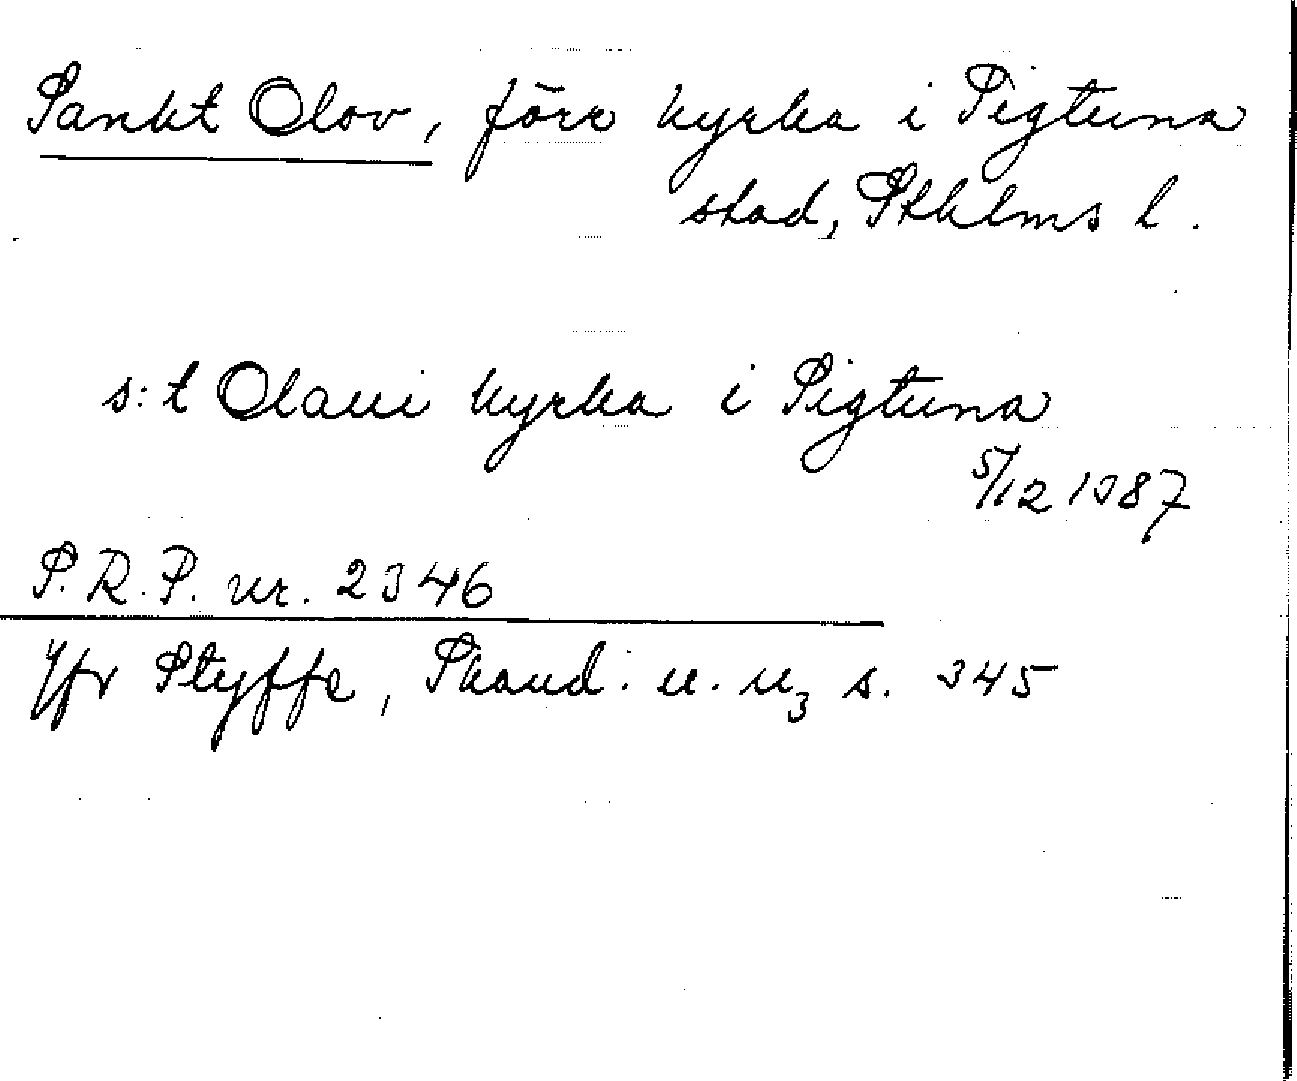 Sankt Olov, förr kyrka i Sigtuna
stad, Sthlms l.
s:t Olaui kyrka i Sigtuna
5/12 1387
S.R.P. nr. 2346
Jfr Styffe, Skand. u. u3 s. 345